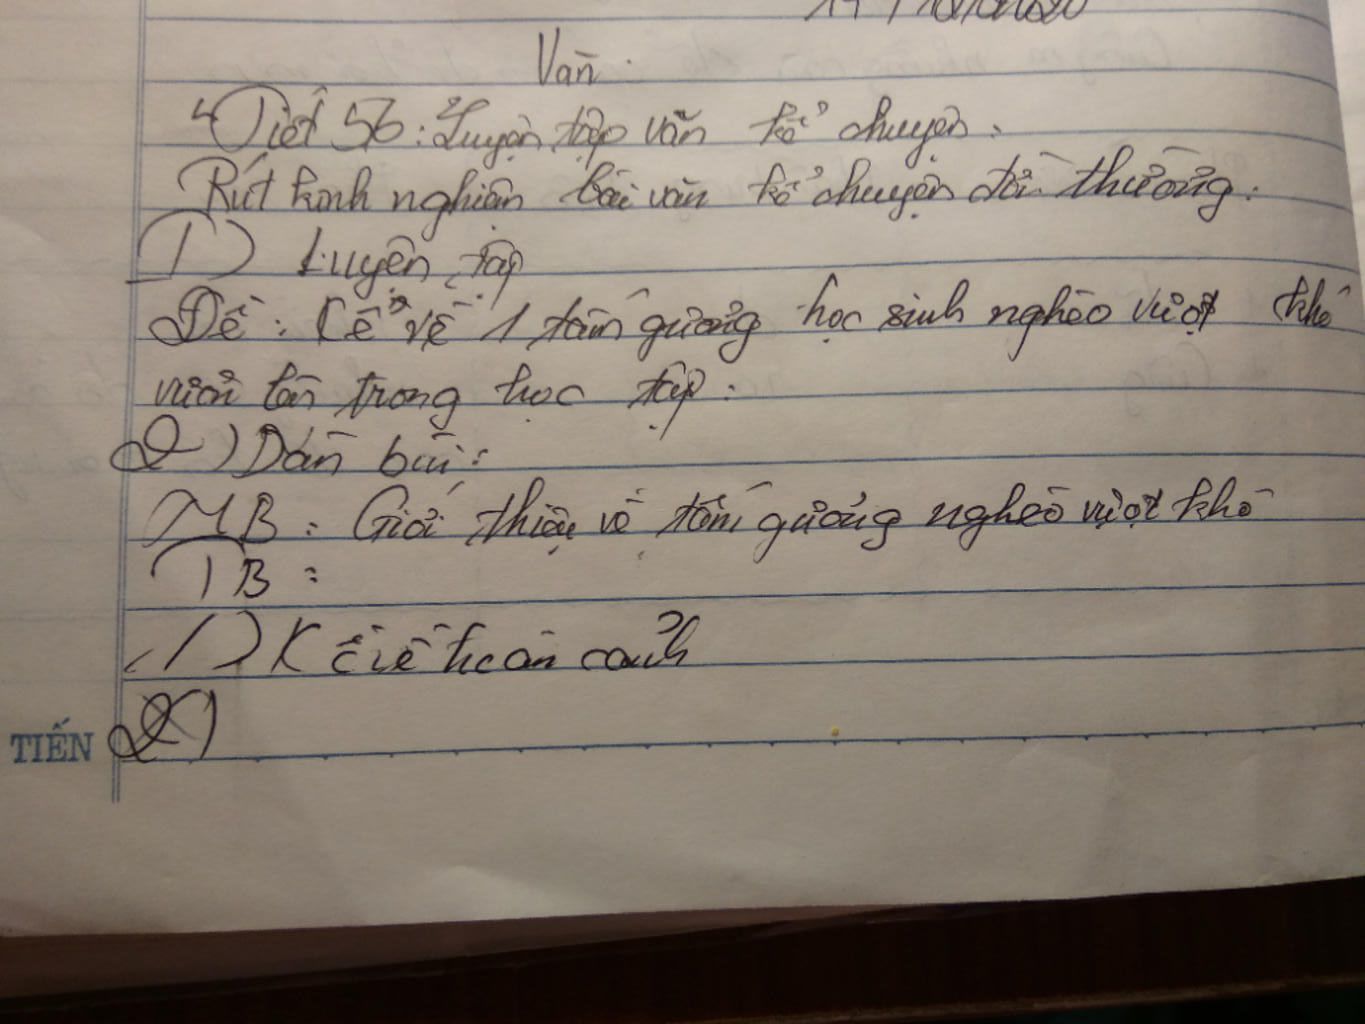 Văn
Tiết 56: Luyện tập văn kể chuyện.
Rút kinh nghiệm bài văn kể chuyện đời thường.
1) Luyện tập
Đề: Kể về 1 tấm gương học sinh nghèo vượt khó
vươn lên trong học tập:
2) Dàn bài:
MB: Giới thiệu về tấm gương nghèo vượt khó
TB:
1) Kể về hoàn cảnh
2)
TIẾN